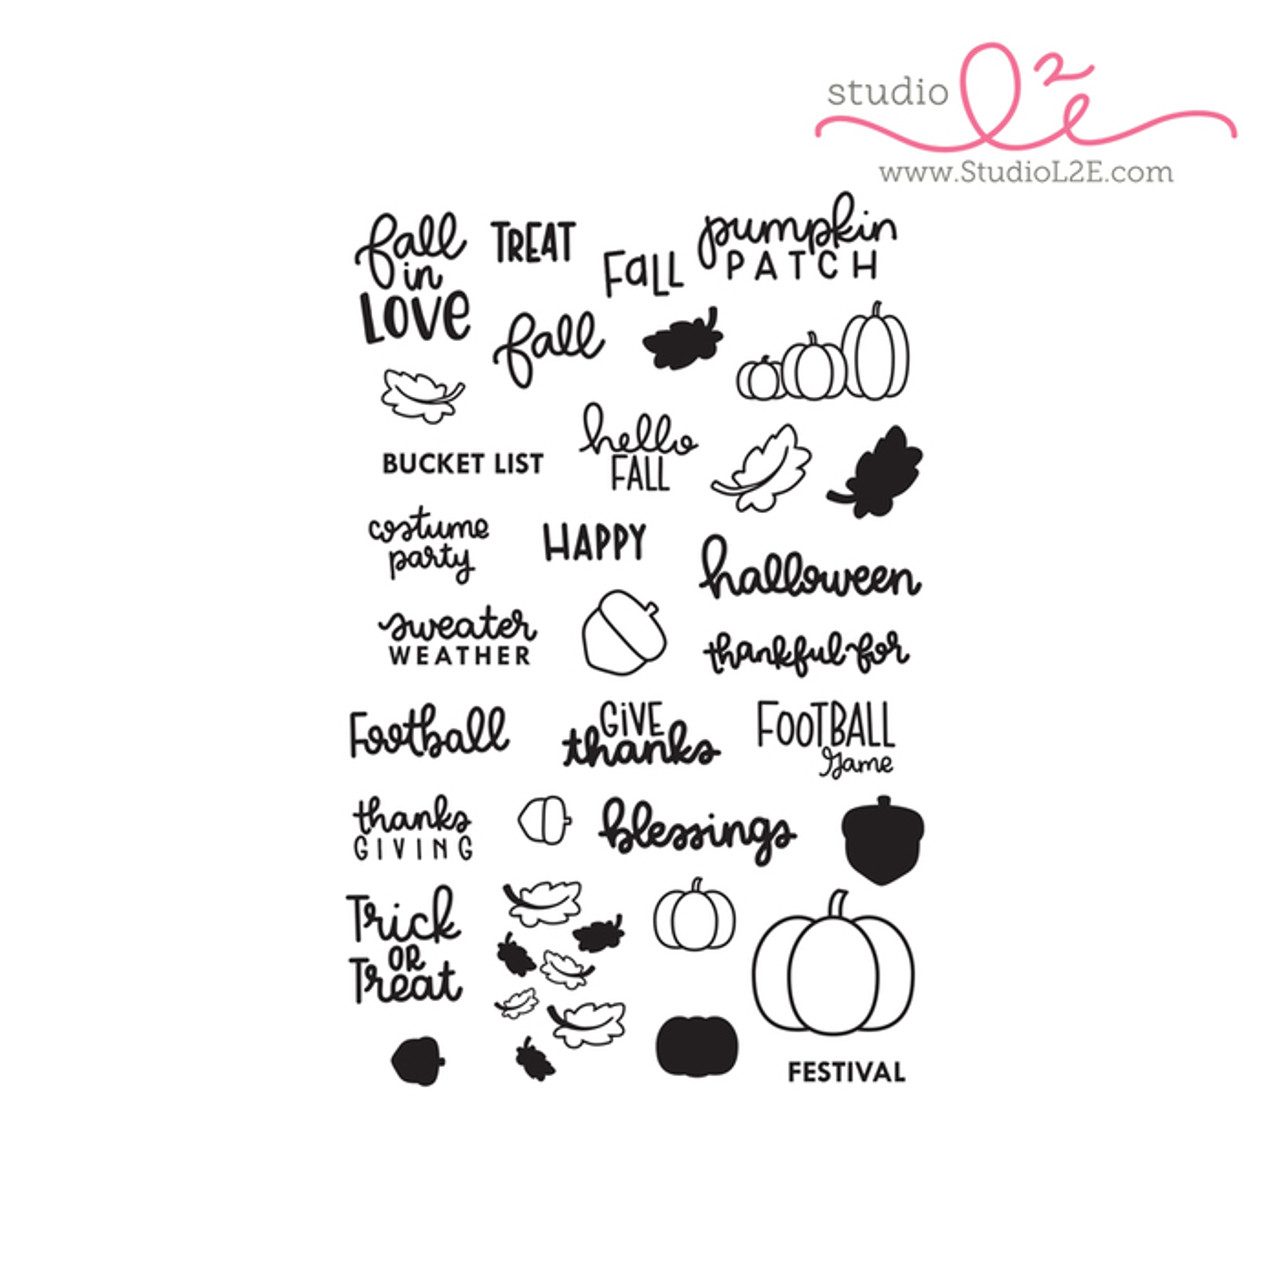 studio l2e
www.StudioL2E.com
fall
in
LOVE
TREAT
FaLL
pumpkin
PATCH
fall
hello
FALL
BUCKET LIST
costume
party
HAPPY
halloween
sweater
WEATHER
thankful for
Football
GiVE
thanks
FOOTBALL
game
thanks
GIVING
blessings
Trick
OR
Treat
FESTIVAL